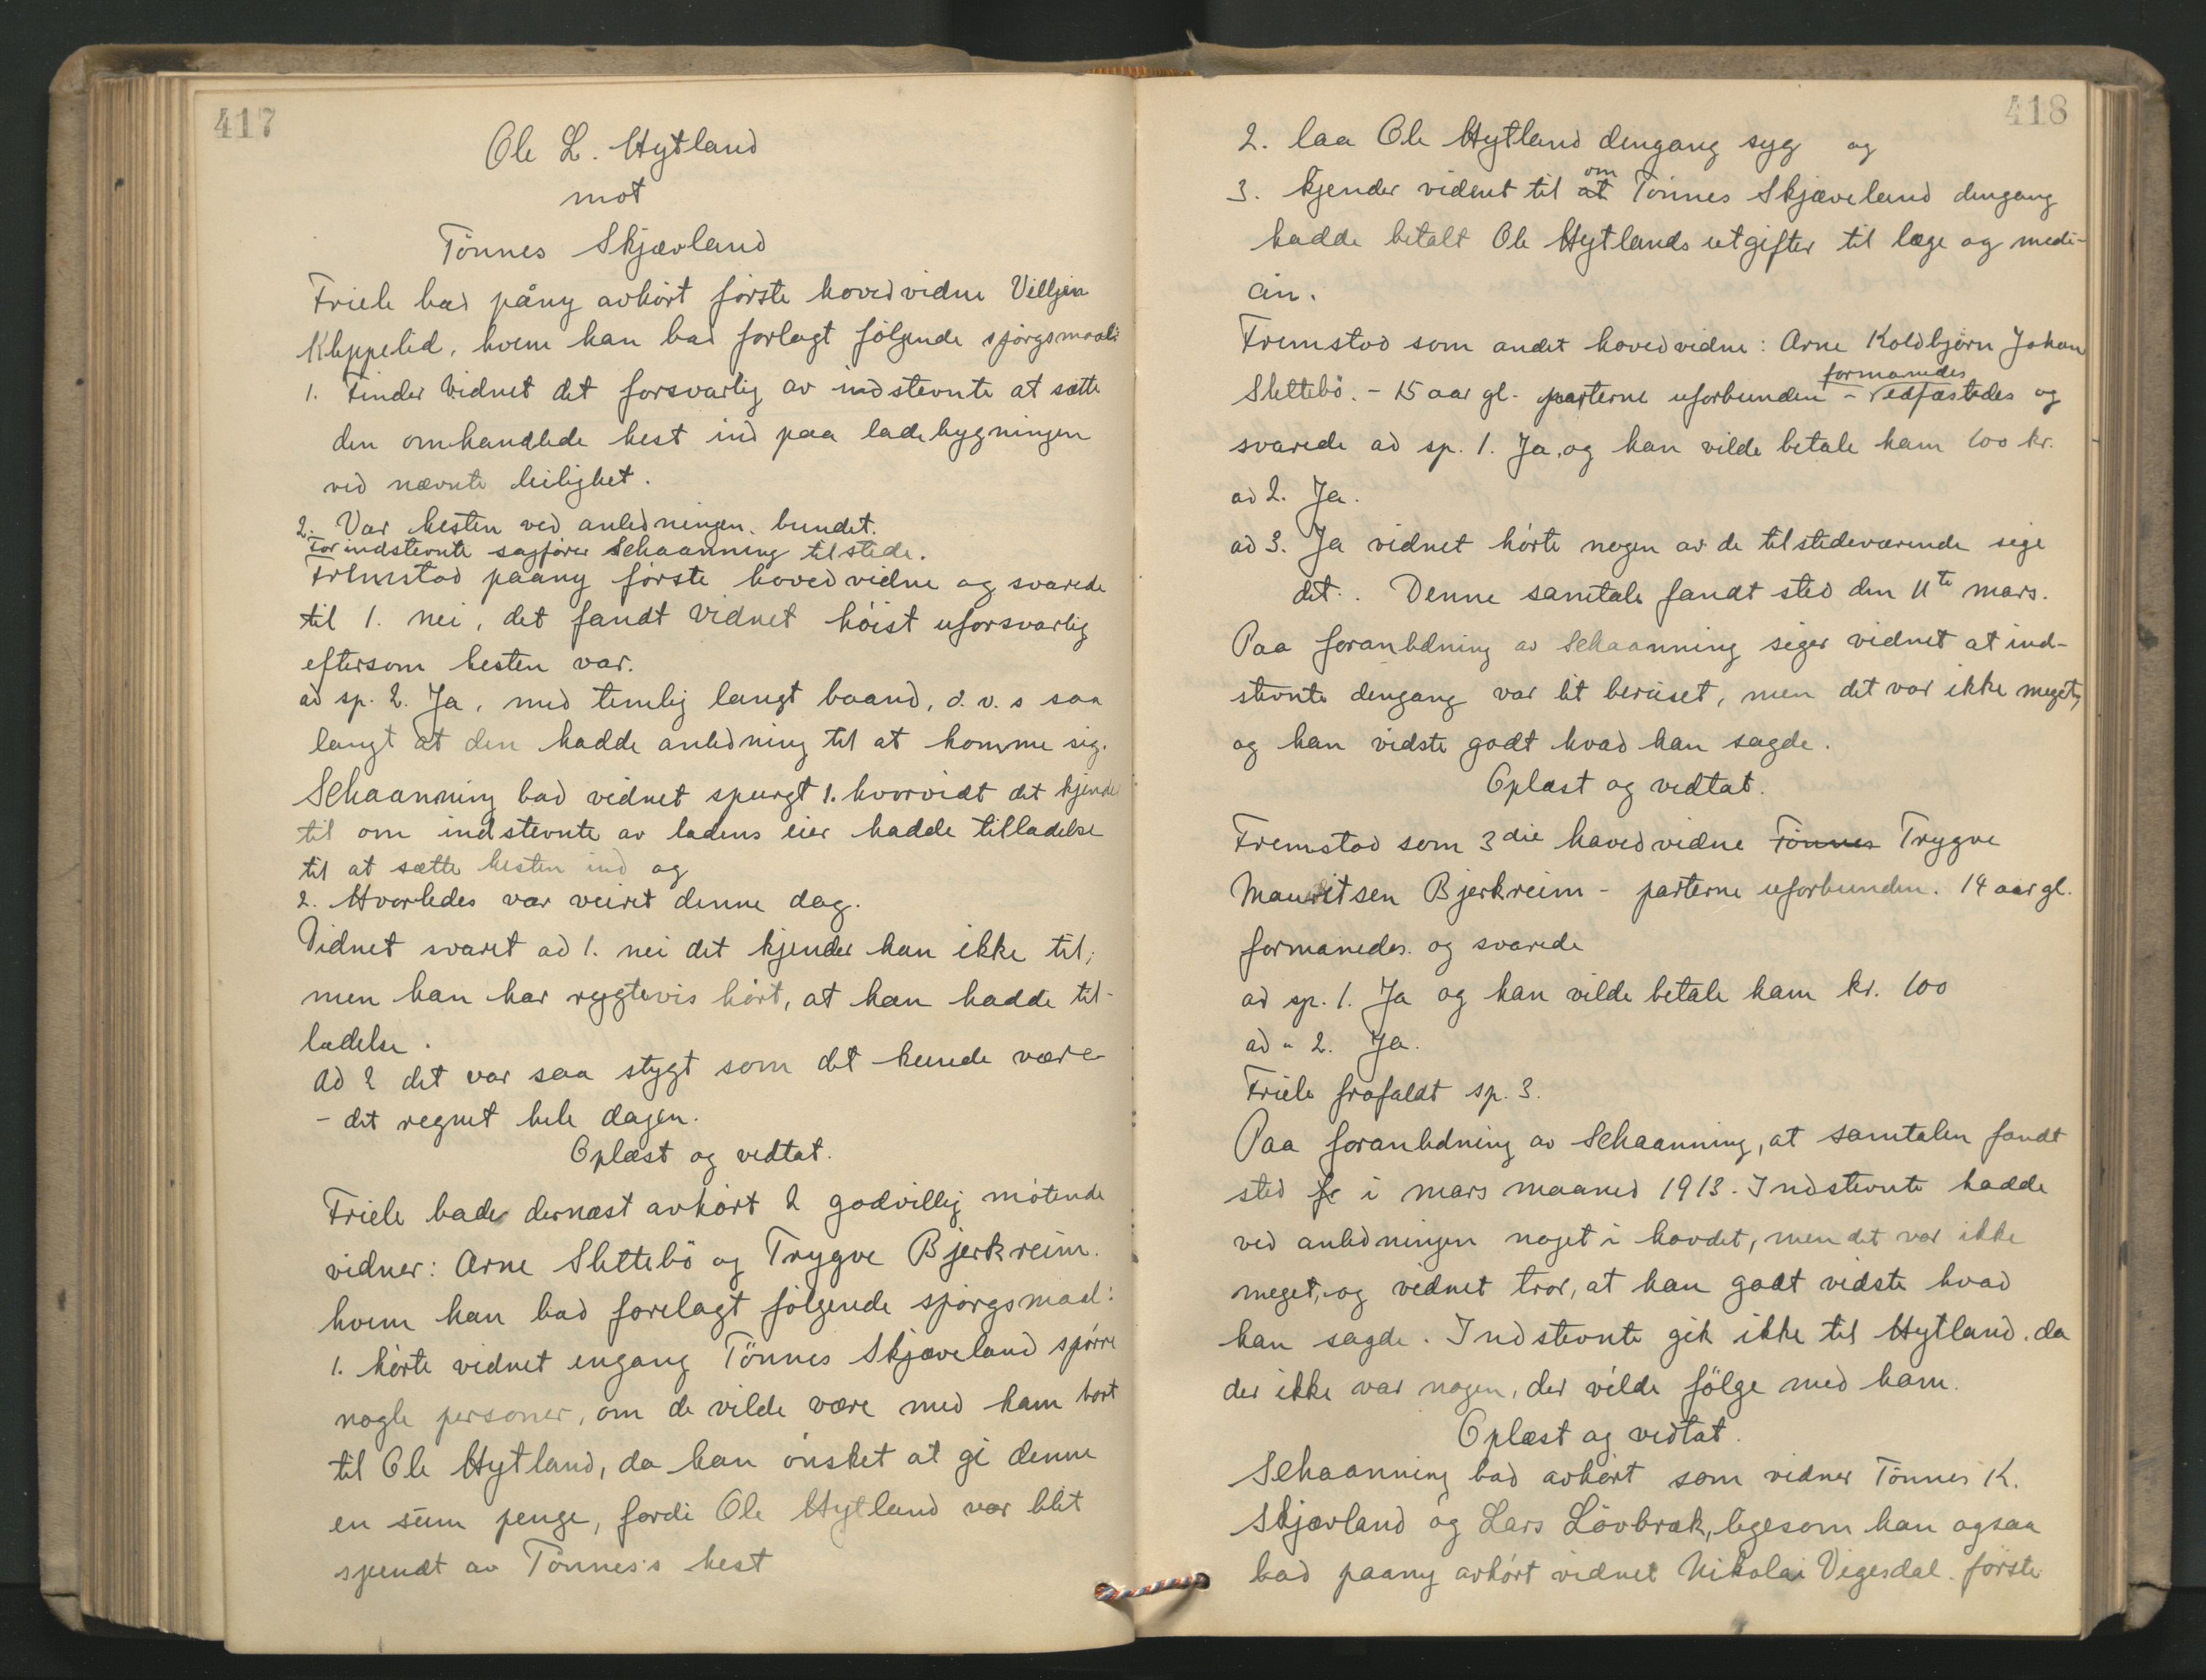 417
Ole L. Hytland
mot
Tönnes Skjævland
Friele bad påny avhört förste hovedvidne Villjen
Kleppelid, hvem han bad forlagt fölgende spörgsmaal:
1. Finder Vidnet det forsvarlig av indstevnte at sætte
den omhandlede hest ind paa ladebygningen
ved nævnte leilighet.
2. Var hesten ved anledningen bundet.
For indstevnte sagförer Schaanning tilstede.
Fremstod paany förste hovedvidne og svarede
til 1. nei, det fandt Vidnet höist uforsvarlig
eftersom hesten var.
ad sp. 2. Ja, med temlig langt baand, d. v. s saa
langt at den hadde anledning til at komme sig.
Schaanning bad vidnet spurgt 1. hvorvidt det kjender
til om indstevnte av ladens eier hadde tilladelse
til at sætte hesten ind og
2. Hvorledes var veiret denne dag.
Vidnet svaret ad 1. nei det kjender han ikke til;
men han har rygtevis hört, at han hadde til-
ladelse.
Ad 2 det var saa stygt som det kunde være
- det regnet hele dagen.
Oplæst og vedtat.
Friele bade dernæst avhört 2 godvillig mötende
vidner: Arne Slettebö og Trygve Bjerkreim.
hvem han bad forelagt fölgende spörgsmaal:
1. hörte vidnet engang Tönnes Skjæveland spörre
nogle personer, om de vilde være med ham bort
til Ole Hytland, da han önsket at gi denne
en sum penge, fordi Ole Hytland var blit
spendt av Tönnes's hest
418
2. laa Ole Hytland dengang syg og
om
3. kjender vidnet til at Tönnes Skjæveland dengang
hadde betalt Ole Hytlands utgifter til læge og medi-
cin.
Fremstod som andet hovedvidne: Arne Koldbjörn Johan
formanedes
Slettebö. - 15 aar gl. parterne uforbunden - edfæstedes og
svarede ad sp. 1. Ja, og han vilde betale ham 100 kr.
ad 2. Ja.
ad 3. Ja vidnet hörte nogen av de tilstedeværende sige
det. Denne samtale fandt sted den 11te mars.
Paa foranledning av Schaanning siger vidnet at ind-
stevnte dengang var lit beruset, men det var ikke meget,
og han vidste godt hvad han sagde.
Oplæst og vedtat.
Fremstod som 3die hovedvidne Tönnes Trygve
Mauritsen Bjerkreim - parterne uforbunden. 14 aar gl.
formanedes og svarede
ad sp. 1. Ja og han vilde betale ham kr. 100
ad " 2. Ja.
Friele frafaldt sp. 3.
Paa foranledning av Schaanning, at samtalen fandt
sted i mars maaned 1913. Indstevnte hadde
ved anledningen noget i hovdet, men det var ikke
meget, og vidnet tror, at han godt vidste hvad
han sagde. Indstevnte gik ikke til Hytland, da
der ikke var nogen, der vilde fölge med ham.
Oplæst og vedtat.
Schaanning bad avhört som vidner Tönnes K.
Skjævland og Lars Lövbræk, ligesom han ogsaa
bad paany avhört vidnet Nikolai Vigesdal. förste